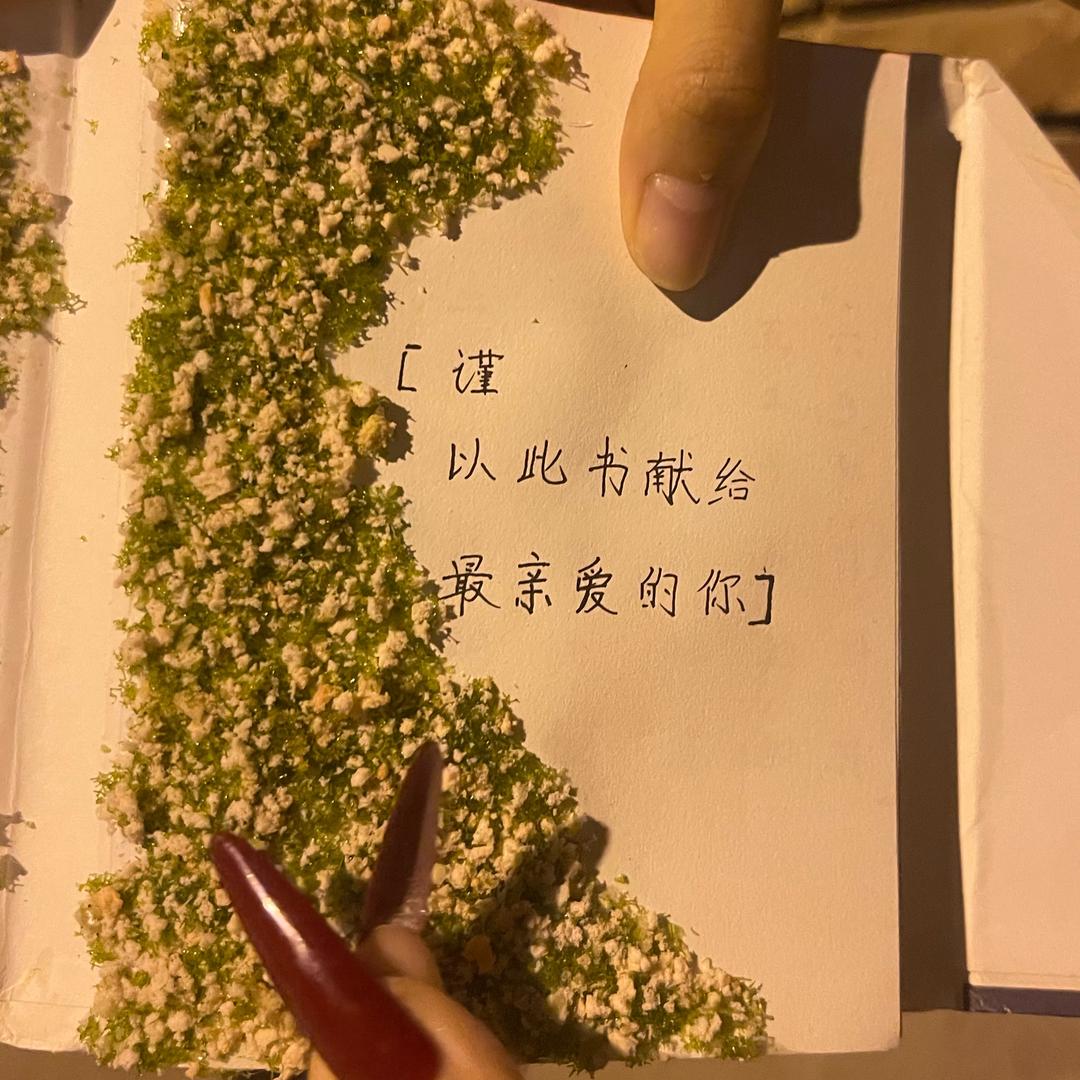 [ 谨
以此书献给
最亲爱的你]